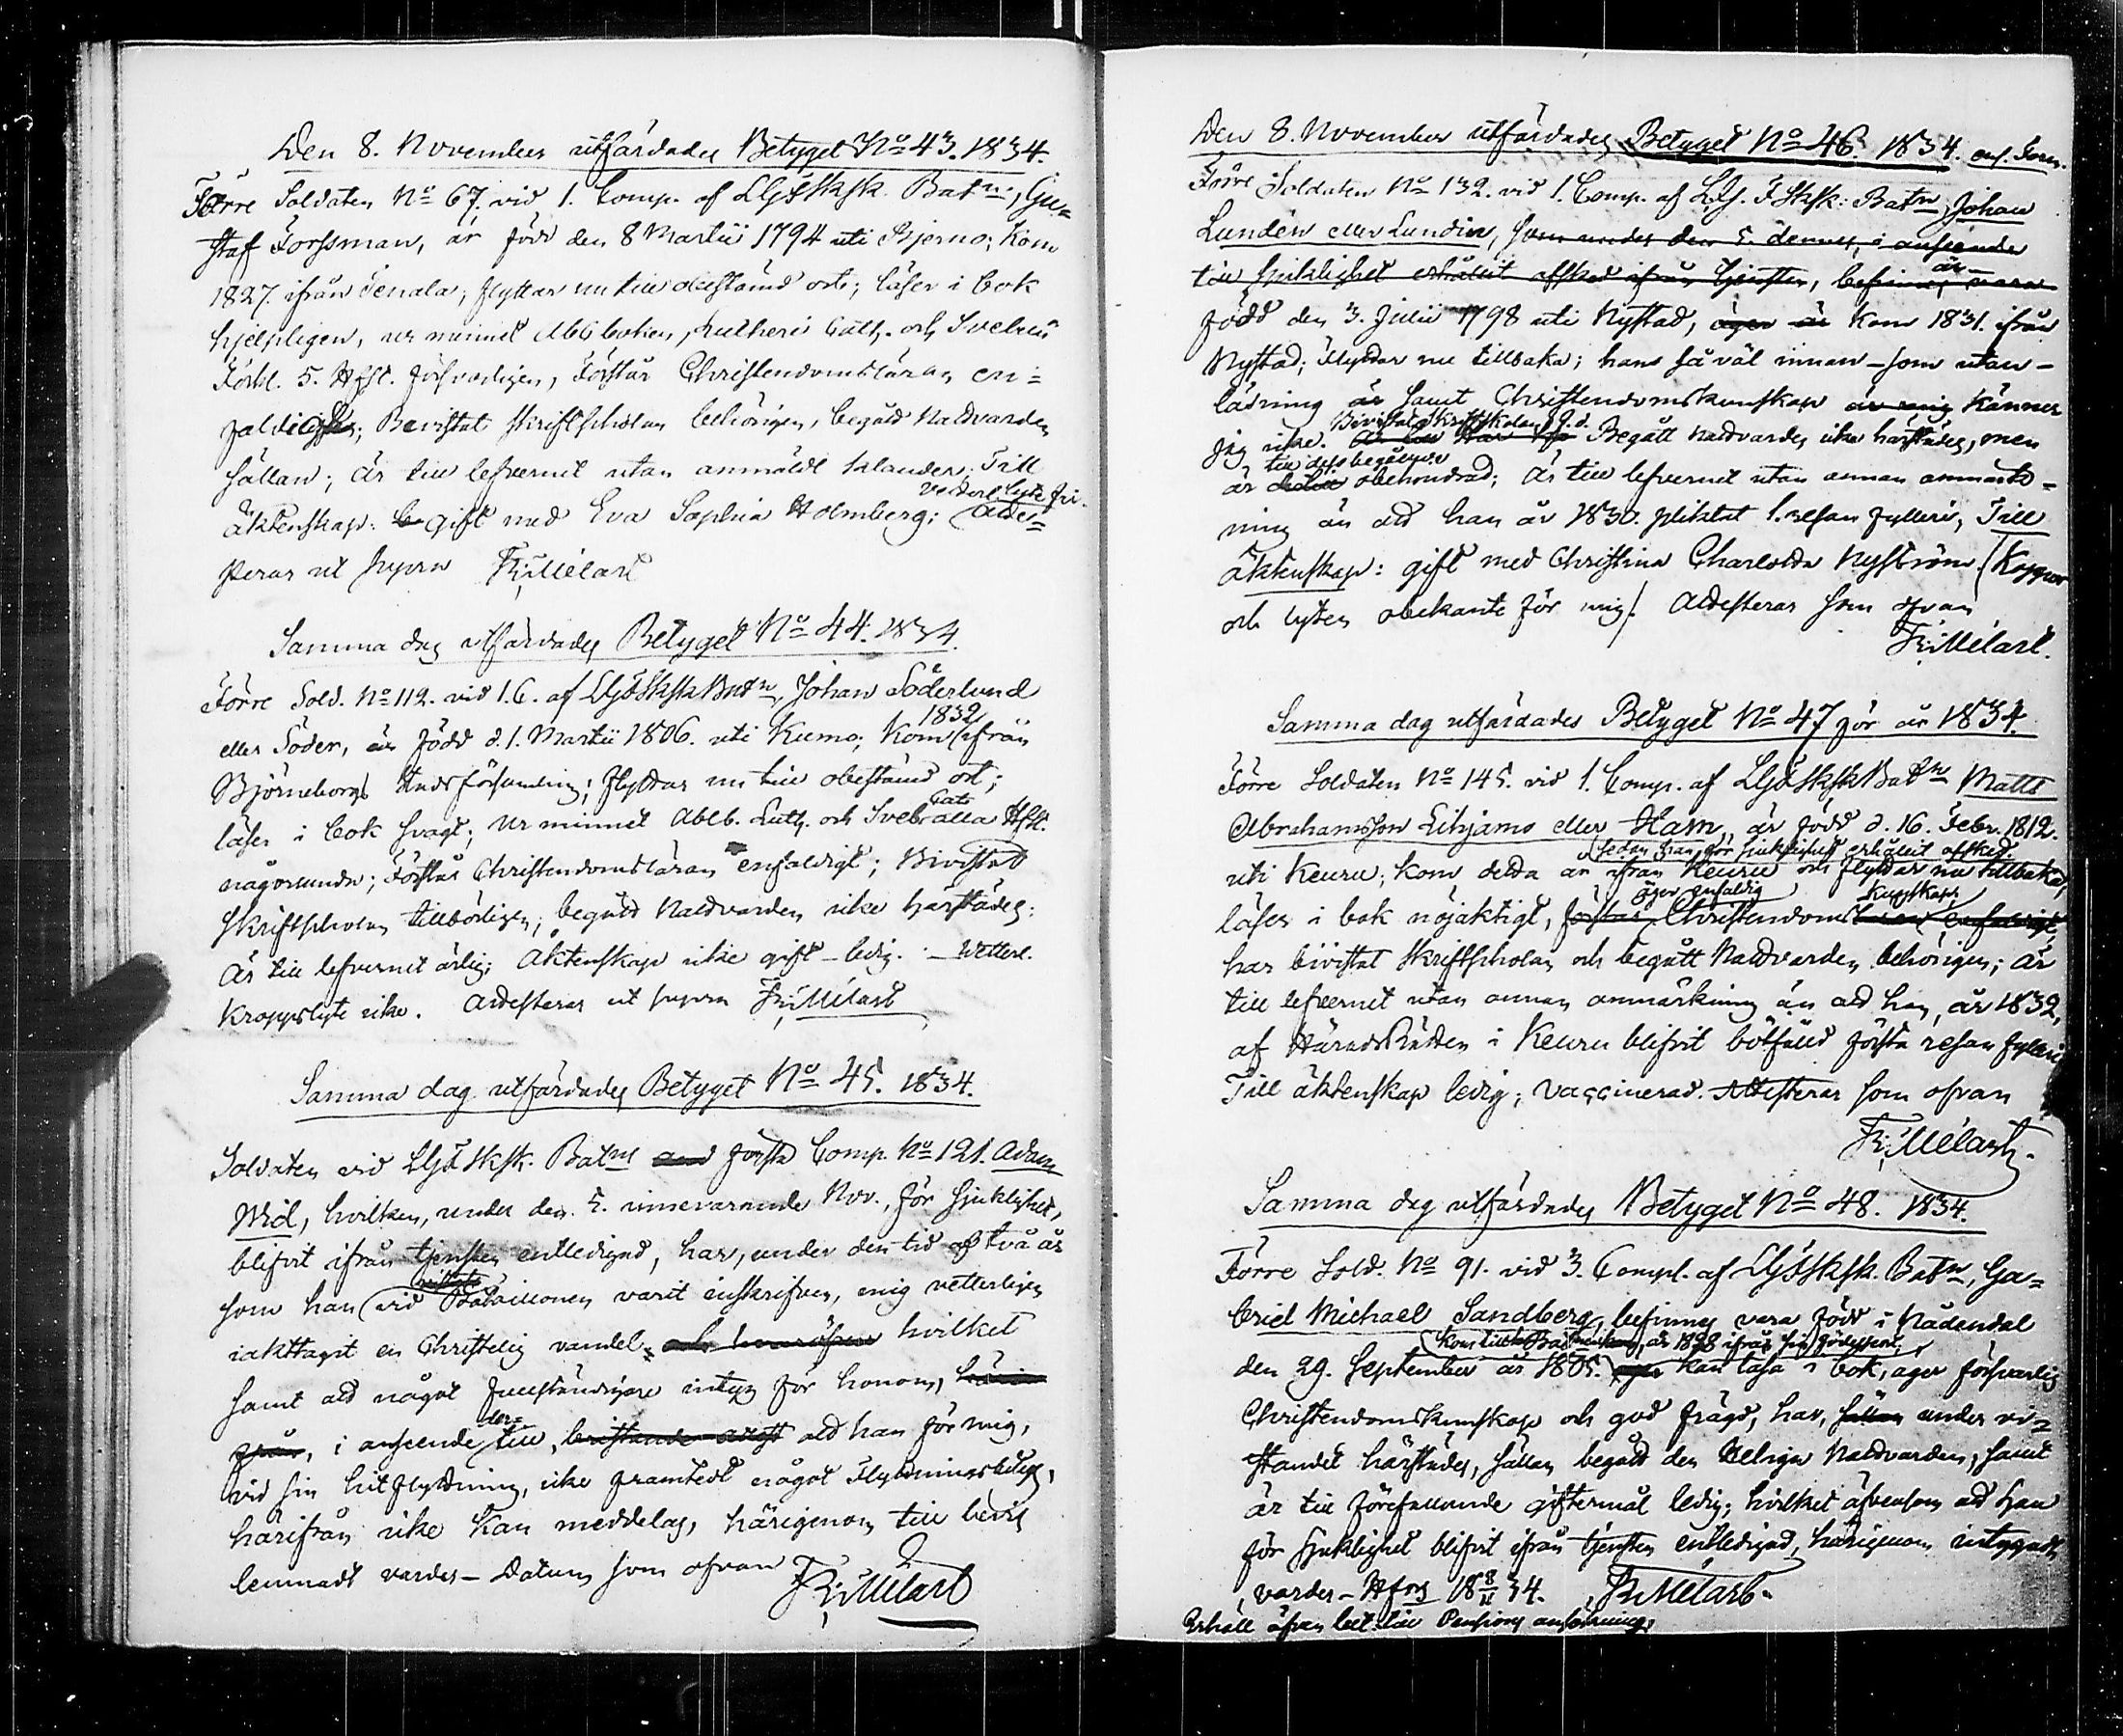 Den 8. November utfärdades Betyget No 43. 1834.
Förre Soldaten No 67, vid 1. Comp. af LGFSkSk. Batn, Gu=
staf Forssman, är född den 8 Martii 1794 uti Bjerno; Kom
1827. ifrån Tenala; flyttar nu till obestämd ort; läser i bok
hjelpligen, ur minnet Abcboken, Lutheri Catk. och Svebelii
Förkl. 5. Hfst. försvarligen, Förstår Christendomsläran en=
faldigt; Bevistat skriftscholan behörigen, begått Nattvarden
sällan; är till lefvernet utan anmäldt klander. Till
vetterl. lyte fri.
äktenskap: gift med Eva Sophia Holmberg; Atte=
sterar ut supra Fr: Mélart
Samma dag utfärdades Betyget No 44. 1834.
Förre Sold. No 112. vid 1. C. af LGFSkSkBatn, Johan Söderlund
1832
eller Söder, är född d. 1. Martii 1806. uti Kumo; Kom ifrån
Björneborgs Stadsförsamling; flyttar nu till obestämd ort;
Cats
läser i bok svagt; ur minnet Abcb. Luth. och Sveb. alla Hfst.
någorlunda; Förstår Christendomsläran enfaldigt; Bivistat
Skriftscholan tillbörligen; begått Nattvarden icke härstädes:
Är till lefvernet ärlig; Äktenskap icke gift – ledig. – Vetterl.
kroppslyte icke. Attesterar ut supra Fr: Mélart
Samma dag utfärdades Betyget No 45. 1834.
Soldaten vid LGFSkSk. Batn första Comp. No 121. Adam
Mid, hvilken, under den 5. innevarande Nov., för sjuklighet,
blifvit ifrån tjensten entledigad, har, under den tid af två år
som han vid Bataillonen varit inskrifven, mig vetterligen
iakttagit en Christelig vandel, och hvaröfver hvilket
samt att något fullständigare intyg för honom, härin
der=
från, i anseende till, bristande attest att han för mig,
vid sin hitflyttning, icke framtedt något flyttningsbetyg,
härifrån icke kan meddelas, härigenom till bevis
lemnadt varder – Datum som ofvan Fr: Mélart
Den 8. November utfärdades Betyget No 46. 1834.
Förre Soldaten No 132. vid 1. Comp. af LG. FSkSk: Batn, Johan
Lundén eller Lundin, som under den 5. dennes, i anseende
är
till sjuklighet erhållit afsked ifrån tjensten, befinnes vara
född den 3. Julii 1798 uti Nystad, äger är kom 1831. ifrån
Nystad; Flyttar nu tillbaka; hans så väl innan – som utan –
läsning är samt Christendomskunskap är mig känner
Bivistat Skriftskolan
jag icke. Begått Nattvarden icke härstädes, men
till dess begående
är obehindrad; Är till lefvernet utan annan anmärk=
ning än att han år 1830. pliktat 1. resan fylleri; Till
äktenskap: gift med Christina Charlotta Nyström. (Kroppar
och lyten obekante för mig). Attesterar som ofvan
Fr: Mélart.
Samma dag utfärdades Betyget No 47 för år 1834.
Förre Soldaten No 145. vid 1. Comp. af LGFSkSkBatn Matts
Abrahamsson Lihjamo eller Ham, är född d. 16. Febr. 1812.
sedan han för sjuklighet erhållit afsked
uti Keuru; Kom detta år ifrån Keuru och flyttar nu tillbaka;
äger enfaldig kunskap
läser i bok nöjaktigt, förstår Christendomsläran enfaldigt
har bivistat Skriftscholan och begått Nattvarden behörigen; är
till lefvernet utan annan anmärkning än att han, år 1832,
af HäradsRätten i Keuru blifvit bötfälld första resan fylleri
Till äktenskap ledig; Vaccinerad. Attesterar som ofvan
Fr: Mélart.
Samma dag utfärdades Betyget No 48. 1834.
Förre Sold. No 91. vid 3. Comp. af LGFSkSk. Batn, Ga=
briel Michael Sandberg, befinnes vara född i Nådendal
Kom till år 1828 ifrån sin födelseort
den 29. September år 1805. kan läsa i bok, äger försvarlig
Christendomskunskap och god frägd, har, sällan under vi=
standet härstädes, sällan begått den Heliga Nattvarden, samt
är till förefallande giftermål ledig; hvilket äfvensom att han
för sjuklighet blifvit ifrån tjensten entledigad, härigenom intygadt
varder – Hfors 18 8/11 34. Fr: Mélart.
Erhöll äfven bet. till Pensions ansökning.